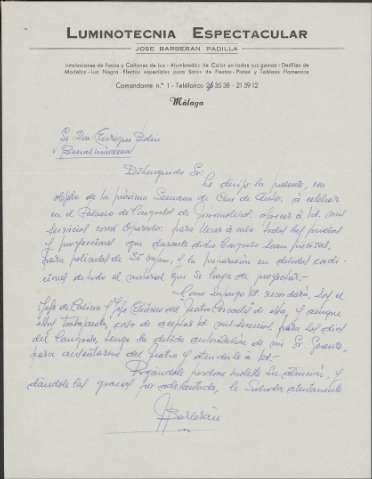 LUMINOTECNIA ESPECTACULAR
JOSE BARBERAN PADILLA
Instalaciones de Focos y Cañones de luz - Alumbrados de Color en todas sus gamas - Desfiles de
Modelos - Luz Negra - Efectos especiales para Salas de Fiestas - Pistas y Tablaos Flamencos
Comandante n.º 1 - Teléfonos 35 38 - 21 59 12
Málaga
Sr. Don Enrique
Benalmádena
Distinguido Sr.
Le dirijo la presente, con
objeto de la próxima Semana de Cine de Autor, a celebrar
en el Palacio de Congresos de Torremolinos, ofrecer a Vd. mis
servicios como Operador para llevar a cabo todas las pruebas
y proyecciones que durante dicho Congreso sean precisas,
para películas de 35 m/m, y la preparación en debidas condi-
ciones de todo el material que se haya de proyectar.-
Como supongo Vd. recordará, soy el
Jefe de Cabina y Jefe Técnico del Teatro Cervantes de esta, y aunque
estoy trabajando, caso de aceptar Vd. mis servicios para los días
del Congreso, tengo la debida autorización de mi Sr. Gerente,
para ausentarme del Teatro y atenderle a Vd.-
Rogándole perdone moleste su atención, y
dándole las gracias por adelantado, le saluda atentamente
JBarberán